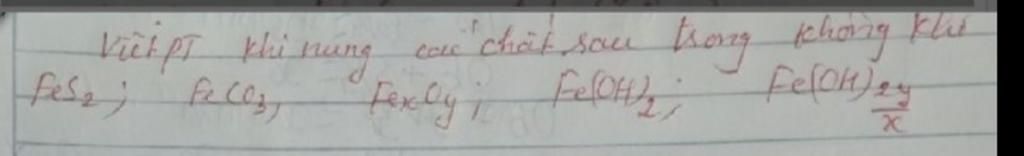 Viết PT khi nung các chất sau trong không khí
FeS₂; FeCO₃, FexOy; Fe(OH)₂; Fe(OH)2y/x